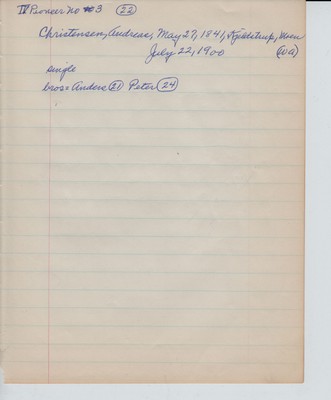 IV Pioneer No #3 (22)
Christensen, Andreas, May 27, 1841, Kjelstrup, Mors
July 22, 1900 (WA)
single
bros = Anders (21) Peter (24)